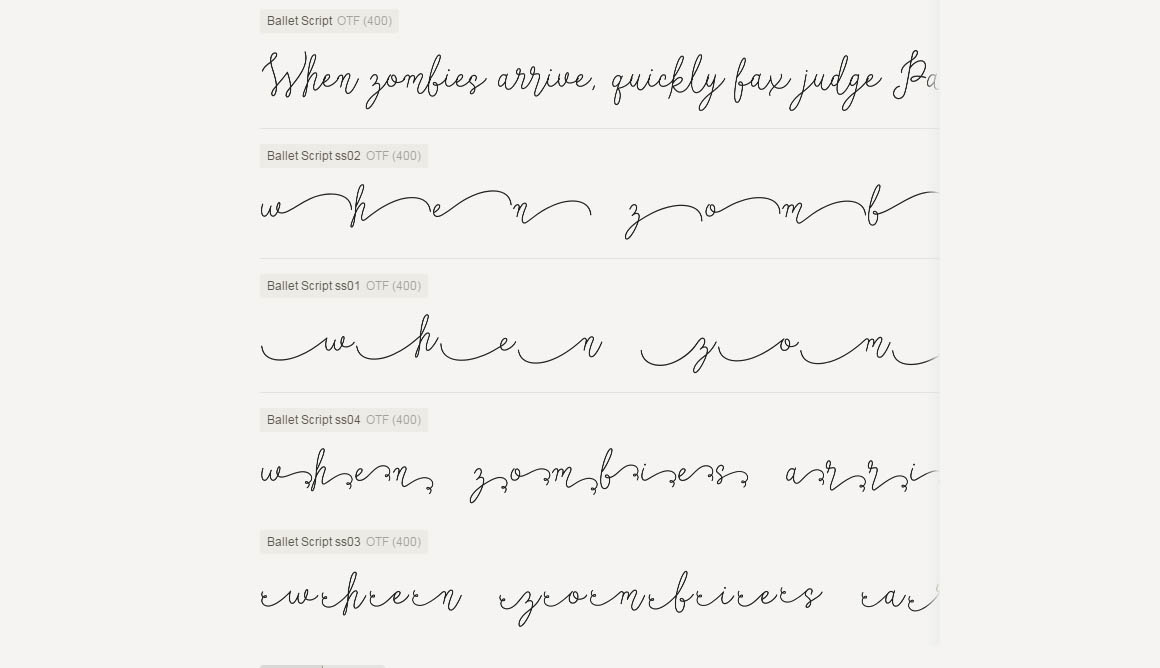 Ballet Script OTF (400)
When zombies arrive, quickly fax judge Pa
Ballet Script ss02 OTF (400)
when zomb
Ballet Script ss01 OTF (400)
when zom
Ballet Script ss04 OTF (400)
when zombies arri
Ballet Script ss03 OTF (400)
when zombies a